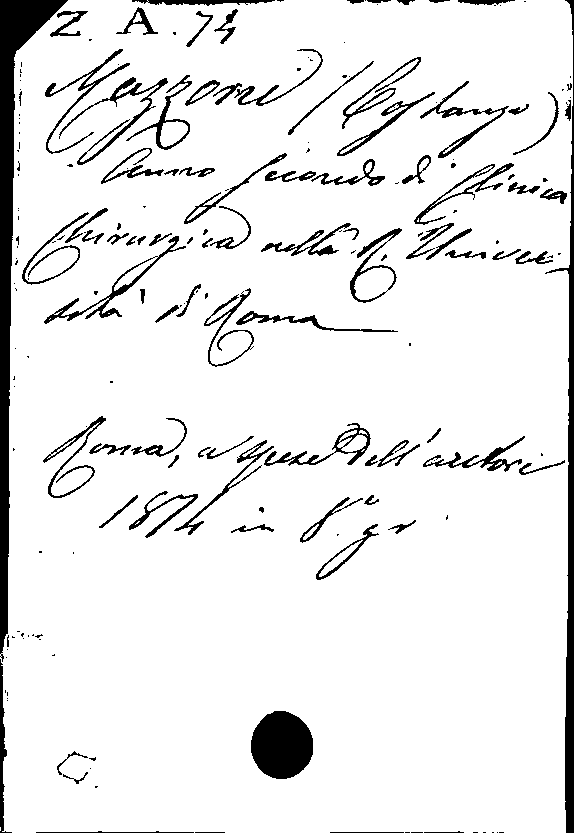 Z. A. 74
Mazzoni (Costanzo)
Anno secondo di Clinica
Chirurgica nella R. Univer-
sità di Roma
Roma, a spese dell'autore
1874 in 8.° gr